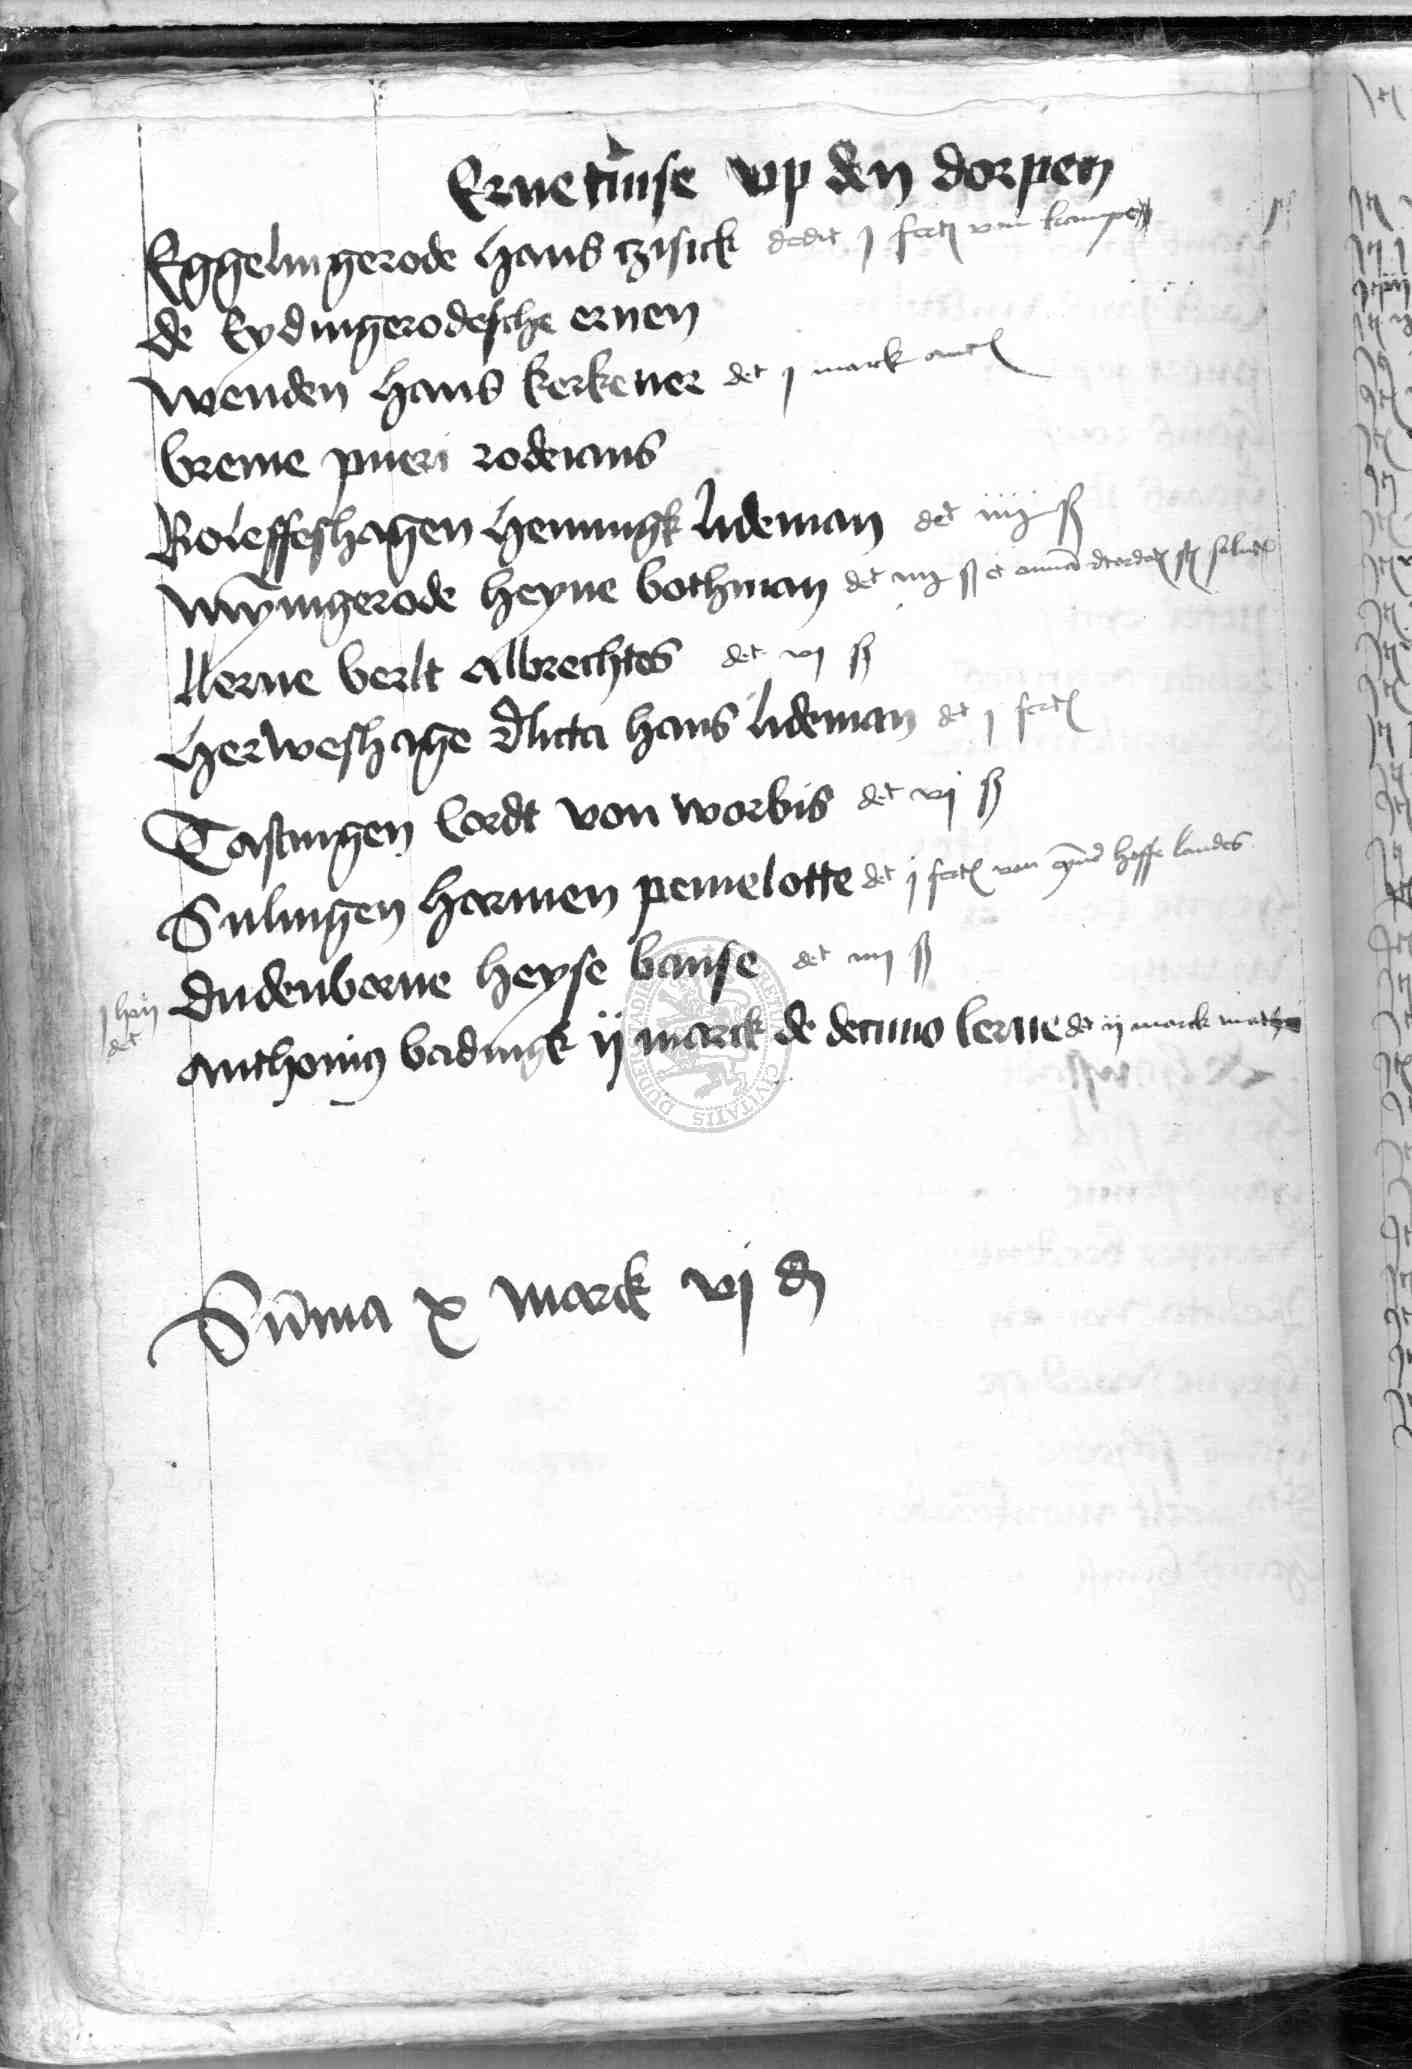 Ernetinse vp den dorpen
Eggelingerode hans czisick dedit j fert van kampe
de Eydingerodesche ernen
Wenden hans kerkener det j marck
breme pueri roderans
Roleffeshagen henningk ludeman det iiij ß
Wyningerode heyne bothman det iiij ß et
llerne berlt albrechtes det vj ß
Herweshage dicta hans ludeman det j fert
Tastungen Cordt von worbis det vj ß
Sulingen harmen pemelotte det j fert van landes
Dudenborne heyse banse det iiij ß
det
anthonig badingk ij marck de decimo lerne det ij marck
Summa x marck vj d
CIVITATIS